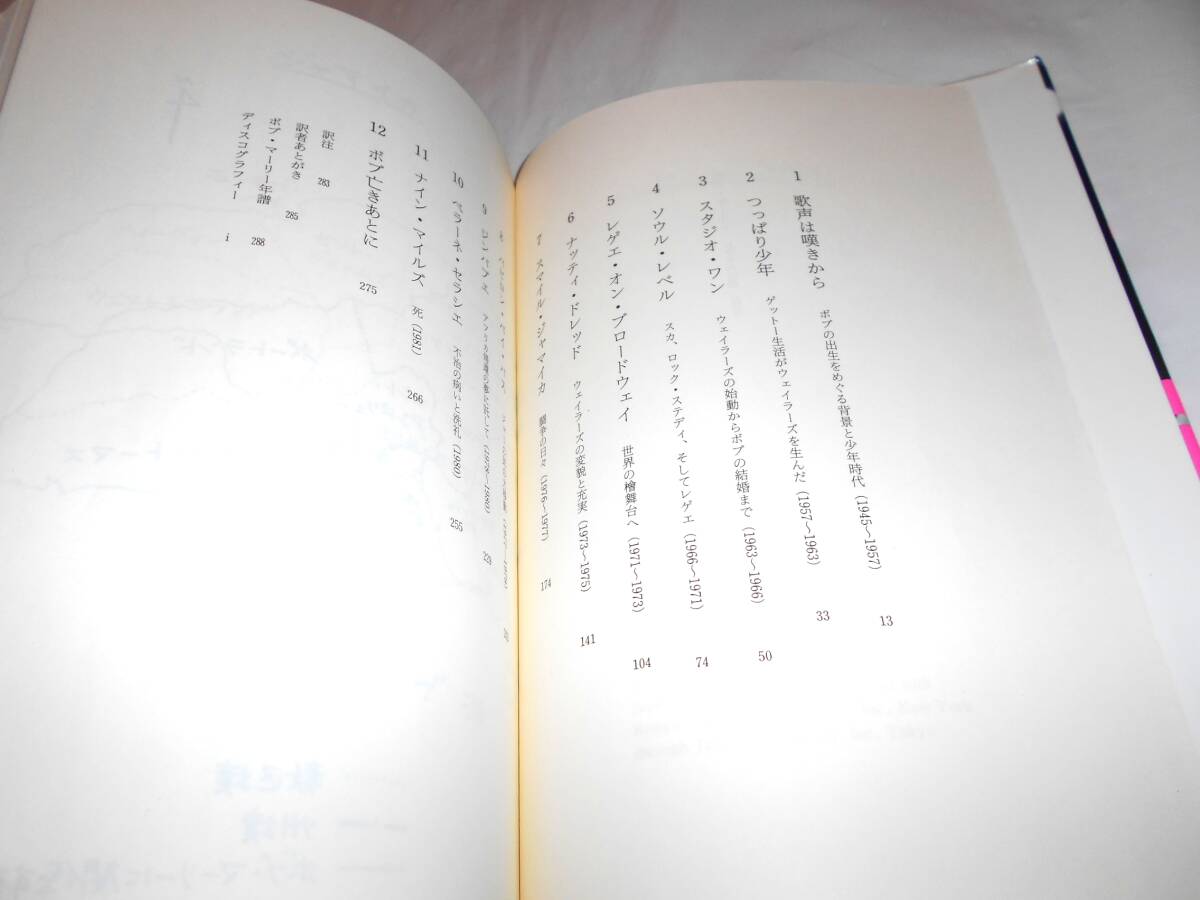 1 歌声は嘆きから ボブの出生をめぐる背景と少年時代(1945〜1957) 13
2 つっぱり少年 ゲットー生活がウェイラーズを生んだ(1957〜1963) 33
3 スタジオ・ワン ウェイラーズの始動からボブの結婚まで(1963〜1966) 50
4 ソウル・レベル スカ、ロック・ステディ、そしてレゲエ(1966〜1971) 74
5 レゲエ・オン・ブロードウェイ 世界の檜舞台へ(1971〜1973) 104
6 ナッティ・ドレッド ウェイラーズの変貌と充実(1973〜1975) 141
7 スマイル・ジャマイカ 闘争の日々(1976〜1977) 174
8
9 ジンバブエ 229
10 ベラーネ・セラシエ 不治の病いと洗礼(1980) 255
11 ナイン・マイルズ 死(1981) 266
12 ボブ亡きあとに 275
訳注 283
訳者あとがき 285
ボブ・マーリー年譜 288
ディスコグラフィー i